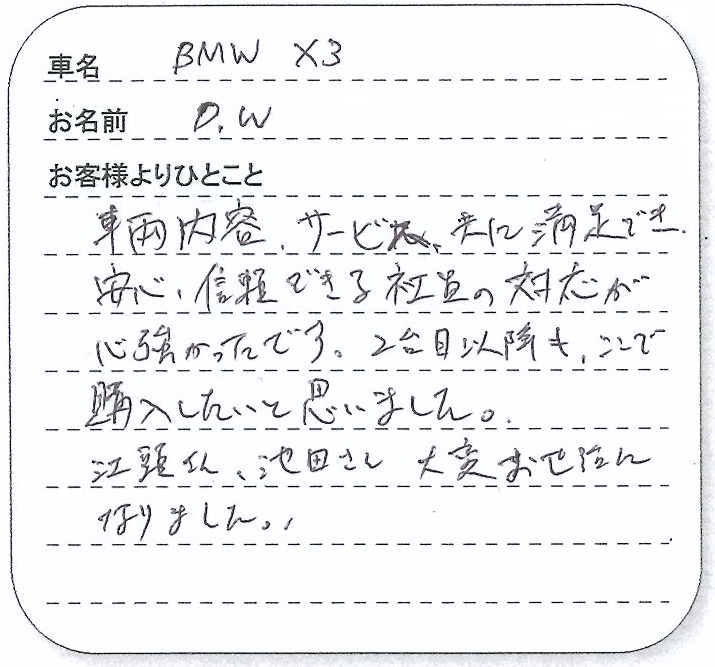 車名 BMW X3
お名前 D.W
お客様よりひとこと
車両内容、サービス、共に満足でき
安心、信頼できる社員の対応が
心強かったです。2台目以降も、ここで
購入したいと思いました。
江頭さん、池田さん 大変お世話に
なりました。